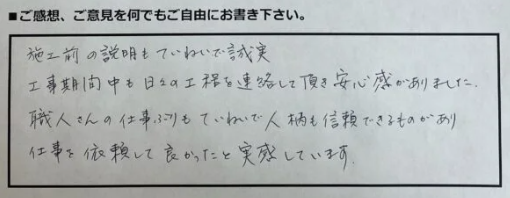 ■ご感想、ご意見を何でもご自由にお書き下さい。
施工前の説明もていねいで誠実
工事期間中も日々の工程を連絡して頂き安心感がありました.
職人さんの仕事ぶりもていねいで人柄も信頼できるものがあり
仕事を依頼して良かったと実感しています.